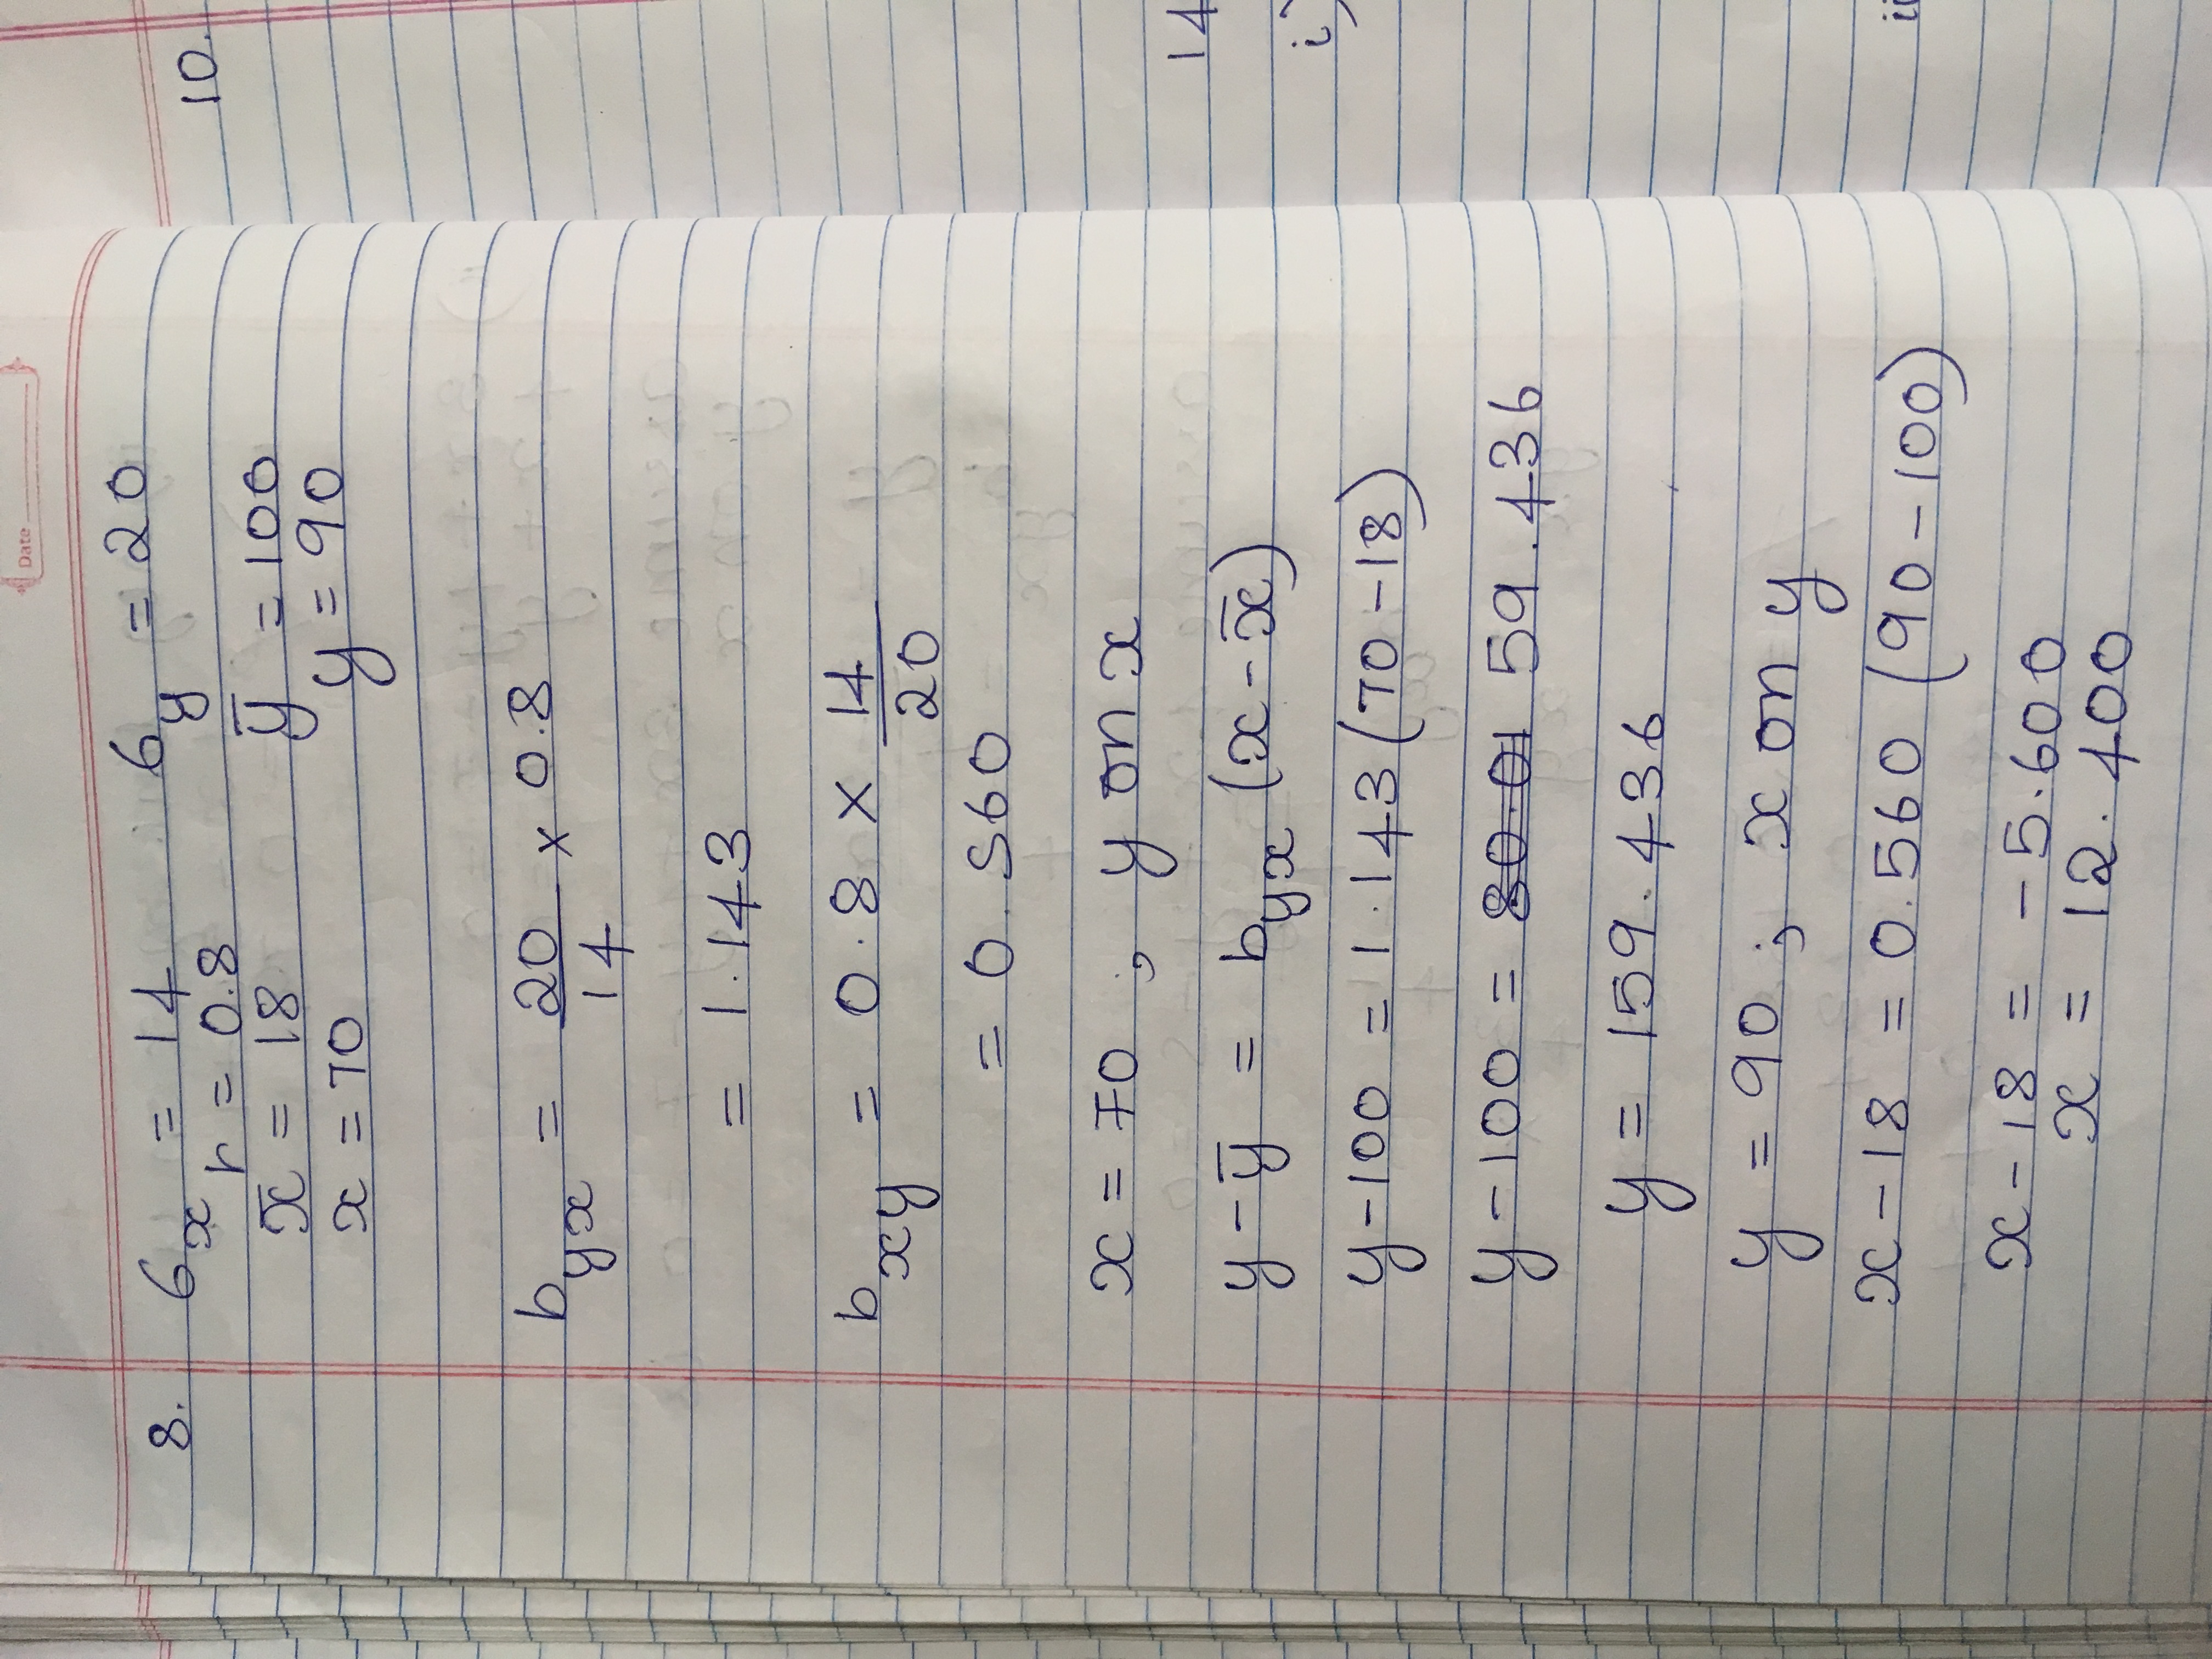 Date
8. σx = 14 σy = 20
r = 0.8
x̄ = 18 ȳ = 100
x = 70 y = 90
byx = 20/14 × 0.8
= 1.143
bxy = 0.8 × 14/20
= 0.560
x = 70 ; y on x
y - ȳ = byx (x - x̄)
y - 100 = 1.143 (70 - 18)
y - 100 = 80.01 59.436
y = 159.436
y = 90 ; x on y
x - 18 = 0.560 (90 - 100)
x - 18 = - 5.600
x = 12.400
10.
14
i)
ii